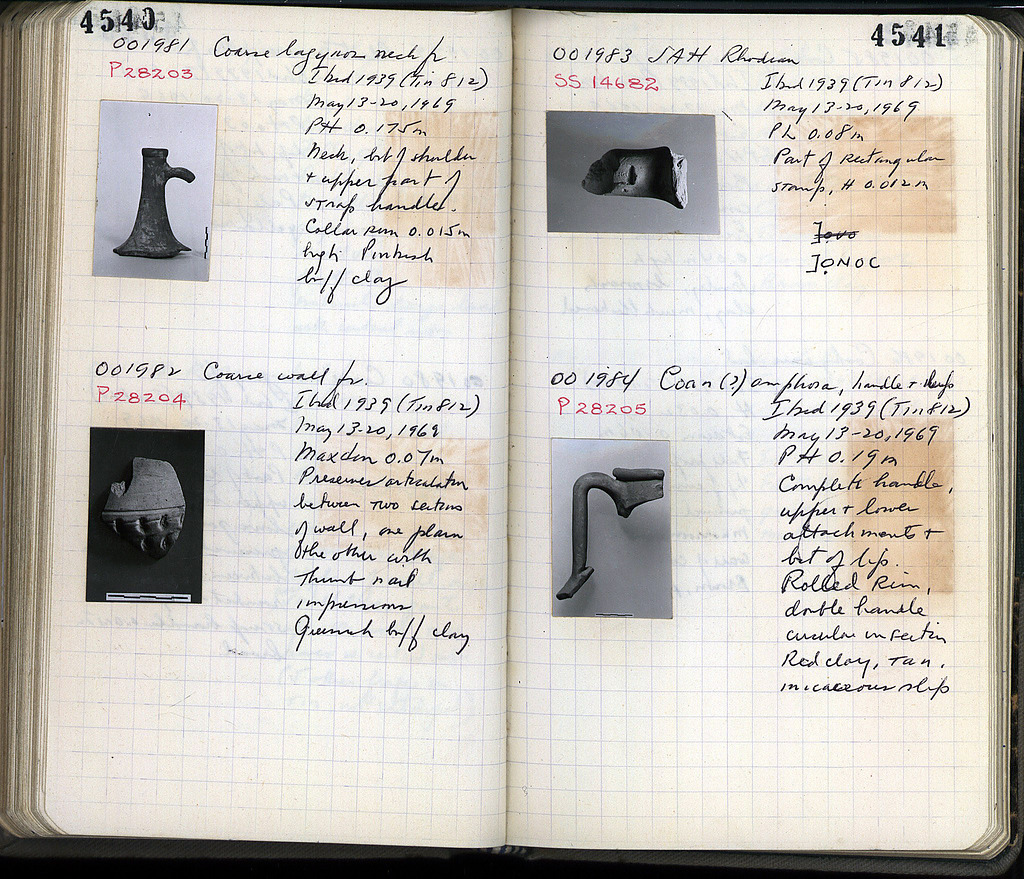 4540
001981 Coarse lagynos neck fr.
P 28203
Ibid 1939 (Tin 812)
May 13-20, 1969
PH 0.175m
Neck, bit of shoulder
+ upper part of
strap handle.
Collar rim 0.015m
high. Pinkish
buff clay
001982 Coarse wall fr.
P 28204
Ibid 1939 (Tin 812)
May 13-20, 1969
Max dim 0.07m
Preserves articulation
between two sections
of wall, one plain
the other with
thumb nail
impressions
Greenish buff clay
4541
001983 SAH Rhodian
SS 14682
Ibid 1939 (Tin 812)
May 13-20, 1969
PL 0.08m
Part of rectangular
stamp, H 0.012m
]ONOC
001984 Coan (?) amphora, handle +
P 28205
Ibid 1939 (Tin 812)
May 13-20, 1969
PH 0.19m
Complete handle,
upper + lower
attachments +
bit of lip.
Rolled rim,
double handle
circular in section
Red clay, tan,
micaceous slip